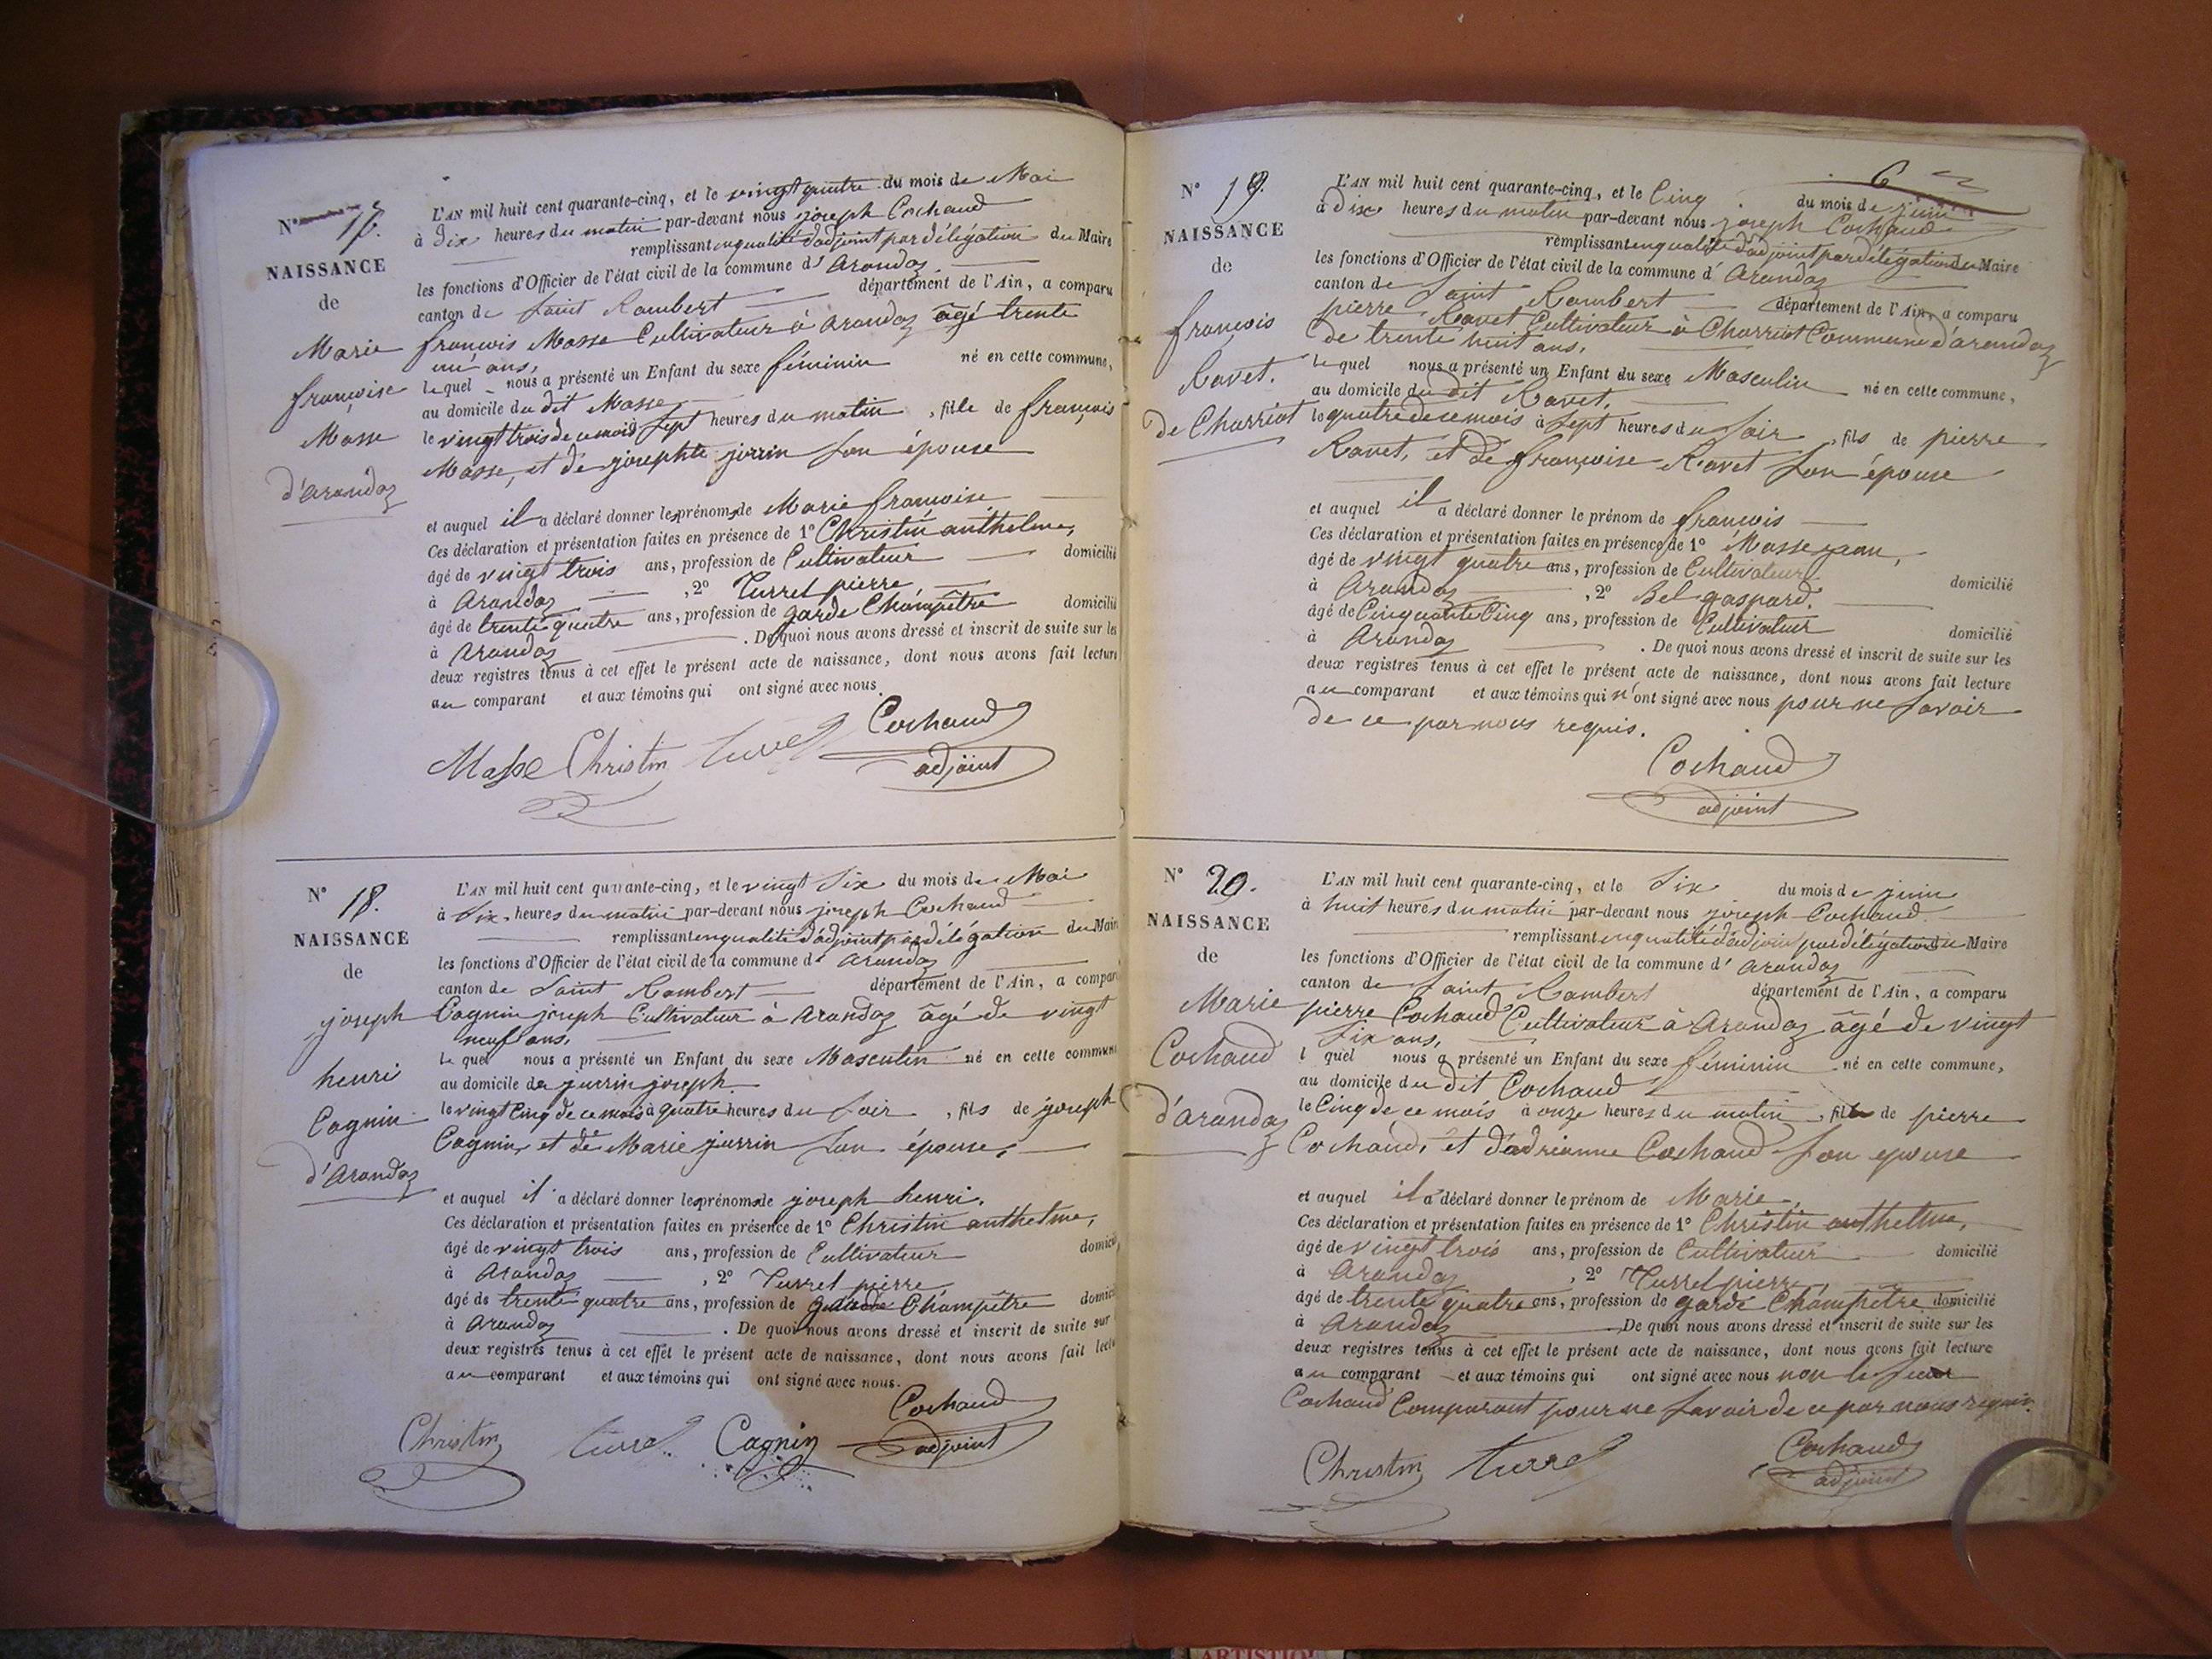 N° 17.
NAISSANCE
de
Marie
françoise
Masse
d'arandaz
L'AN mil huit cent quarante-cinq, et le vingt quatre du mois de Mai
à dix heures du matin par-devant nous joseph Cochaud
remplissant en qualité d'adjoint par délégation du Maire
les fonctions d'Officier de l'état civil de la commune d'Arandaz
canton de Saint Rambert département de l'Ain, a comparu
françois Masse Cultivateur à arandaz âgé trente
un ans,
lequel nous a présenté un Enfant du sexe féminin né en cette commune,
au domicile du dit Masse
le vingt trois de ce mois sept heures du matin, fille de françois
Masse, et de josephte jorrin son épouse
et auquel il a déclaré donner les prénoms de Marie françoise
Ces déclaration et présentation faites en présence de 1° Christin anthelme,
âgé de vingt trois ans, profession de Cultivateur domicilié
à Arandaz, 2° Turrel pierre
âgé de trente quatre ans, profession de garde Champêtre domicilié
à Arandaz. De quoi nous avons dressé et inscrit de suite sur les
deux registres tenus à cet effet le présent acte de naissance, dont nous avons fait lecture
au comparant et aux témoins qui ont signé avec nous.
Masse Christin turrel Cochaud
adjoint
N° 18.
NAISSANCE
de
joseph
henri
Cagnin
d'Arandaz
L'AN mil huit cent quarante-cinq, et le vingt six du mois de Mai
à six heures du matin par-devant nous joseph Cochaud
remplissant en qualité d'adjoint par délégation du Maire
les fonctions d'Officier de l'état civil de la commune d'arandaz
canton de Saint Rambert département de l'Ain, a comparu
Cagnin joseph Cultivateur à Arandaz âgé de vingt
neuf ans,
lequel nous a présenté un Enfant du sexe Masculin né en cette commune
au domicile de jurrin joseph
le vingt Cinq de ce mois à quatre heures du soir, fils de joseph
Cagnin, et de Marie jurrin son épouse,
et auquel il a déclaré donner les prénoms de joseph henri,
Ces déclaration et présentation faites en présence de 1° Christin anthelme,
âgé de vingt trois ans, profession de Cultivateur domicilié
à Arandaz, 2° Turrel pierre
âgé de trente quatre ans, profession de garde Champêtre domicilié
à Arandaz. De quoi nous avons dressé et inscrit de suite sur
deux registres tenus à cet effet le présent acte de naissance, dont nous avons fait lecture
au comparant et aux témoins qui ont signé avec nous.
Cochaud
Christin turrel Cagnin adjoint
6
N° 19.
NAISSANCE
de
françois
Ravet.
de Charriot
L'AN mil huit cent quarante-cinq, et le Cinq du mois de juin
à dix heures du matin par-devant nous joseph Cochaud
remplissant en qualité d'adjoint par délégation du Maire
les fonctions d'Officier de l'état civil de la commune d'Arandaz
canton de Saint Rambert département de l'Ain, a comparu
pierre Ravet Cultivateur à Charriot Commune d'arandaz
de trente huit ans,
lequel nous a présenté un Enfant du sexe Masculin né en cette commune,
au domicile du dit Ravet,
le quatre de ce mois à sept heures du soir, fils de pierre
Ravet, et de françoise Ravet son épouse
et auquel il a déclaré donner le prénom de françois
Ces déclaration et présentation faites en présence de 1° Masse jean,
âgé de vingt quatre ans, profession de Cultivateur domicilié
à Arandaz, 2° Bel gaspard,
âgé de Cinquante Cinq ans, profession de Cultivateur domicilié
à Arandaz. De quoi nous avons dressé et inscrit de suite sur les
deux registres tenus à cet effet le présent acte de naissance, dont nous avons fait lecture
au comparant et aux témoins qui n'ont signé avec nous pour ne savoir
de ce par nous requis.
Cochaud
adjoint
N° 20.
NAISSANCE
de
Marie
Cochaud
d'arandaz
L'AN mil huit cent quarante-cinq, et le six du mois de juin
à huit heures du matin par-devant nous joseph Cochaud
remplissant en qualité d'adjoint par délégation du Maire
les fonctions d'Officier de l'état civil de la commune d'arandaz
canton de Saint Rambert département de l'Ain, a comparu
pierre Cochaud Cultivateur à Arandaz âgé de vingt
six ans,
lquel nous a présenté un Enfant du sexe féminin né en cette commune,
au domicile du dit Cochaud
le Cinq de ce mois à onze heures du matin, fille de pierre
Cochaud, et d'adrienne Cochaud son epouse
et auquel il a déclaré donner le prénom de Marie,
Ces déclaration et présentation faites en présence de 1° Christin anthelme,
âgé de vingt trois ans, profession de Cultivateur domicilié
à Arandaz, 2° Turrel pierre,
âgé de trente quatre ans, profession de garde Champêtre domicilié
à Arandaz De quoi nous avons dressé et inscrit de suite sur les
deux registres tenus à cet effet le présent acte de naissance, dont nous avons fait lecture
au comparant et aux témoins qui ont signé avec nous non le sieur
Cochaud Comparant pour ne savoir de ce par nous requis.
Christin turrel Cochaud
adjoint
ARTISTIQ